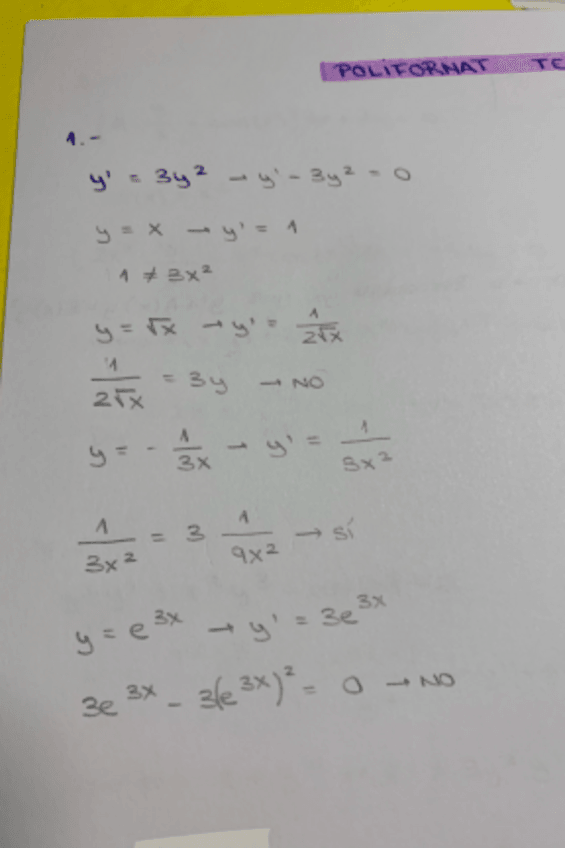 POLIFORMAT TE
1.-
y' = 3y² → y' - 3y² = 0
y = x → y' = 1
1 ≠ 3x²
y = √x → y' = 1/(2√x)
1/(2√x) = 3y → NO
y = - 1/(3x) → y' = 1/(3x²)
1/(3x²) = 3 1/(9x²) → sí
y = e^(3x) → y' = 3e^(3x)
3e^(3x) - 3(e^(3x))² = 0 → NO